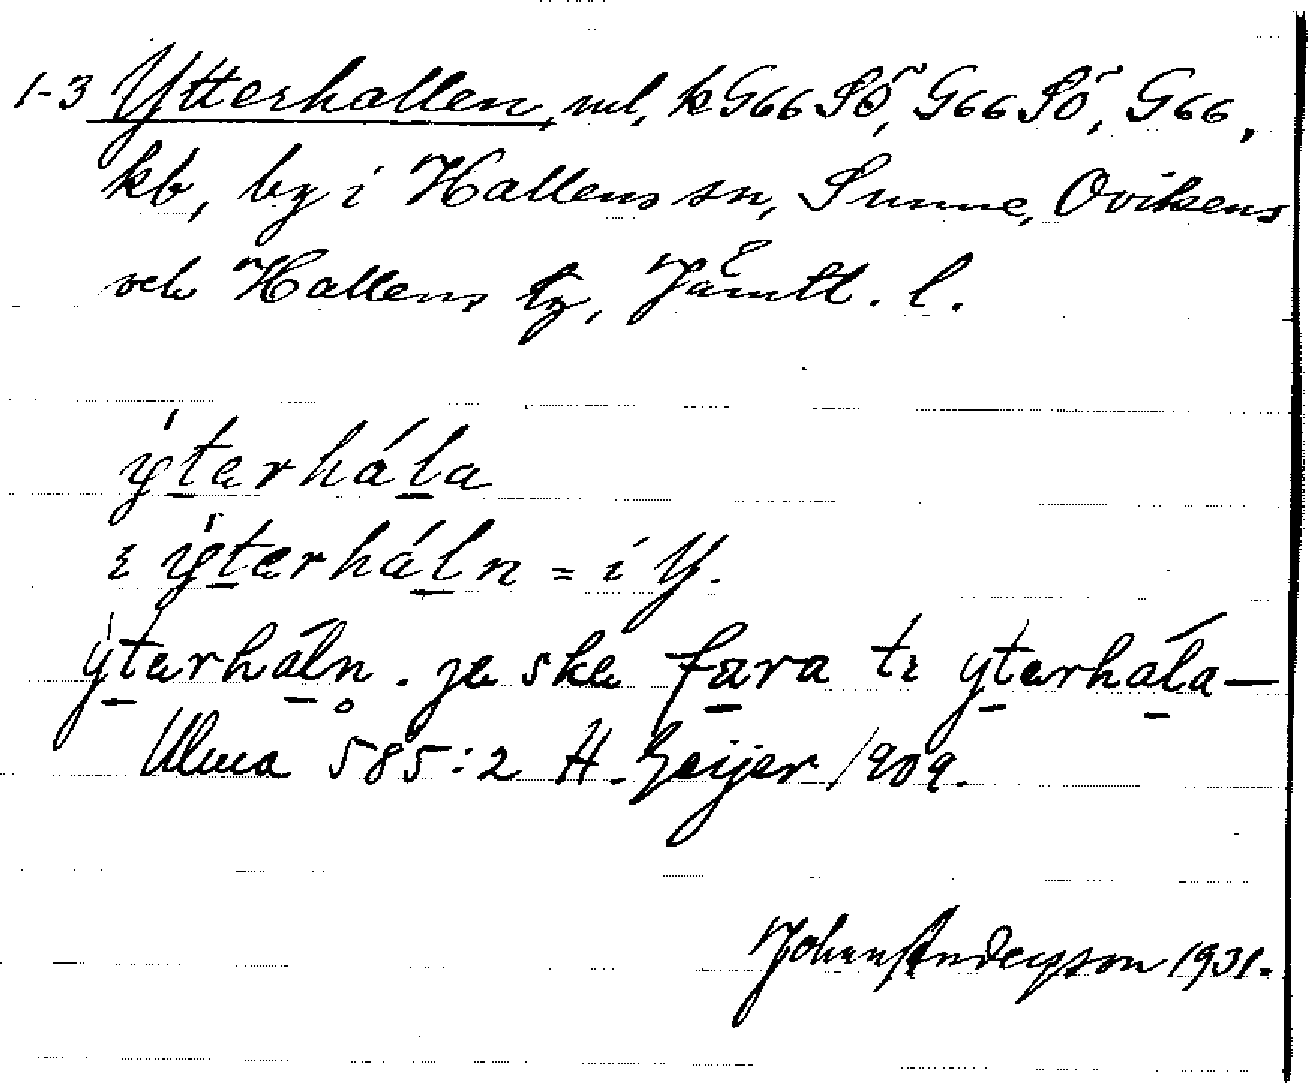 1-3 Ytterhallen, ml, k G66 SÖ, G66 SÖ, G66,
kb, by i Hallens sn, Sunne, Ovikens
och Hallens tg, Jämtl. l.
ýterhála
ɩ ýterháln = i Y.
ýterháln̥. ja ska fara tɩ yterhála—
Ulma 585:2 H. Geijer 1909.
Johan Anderson 1931.